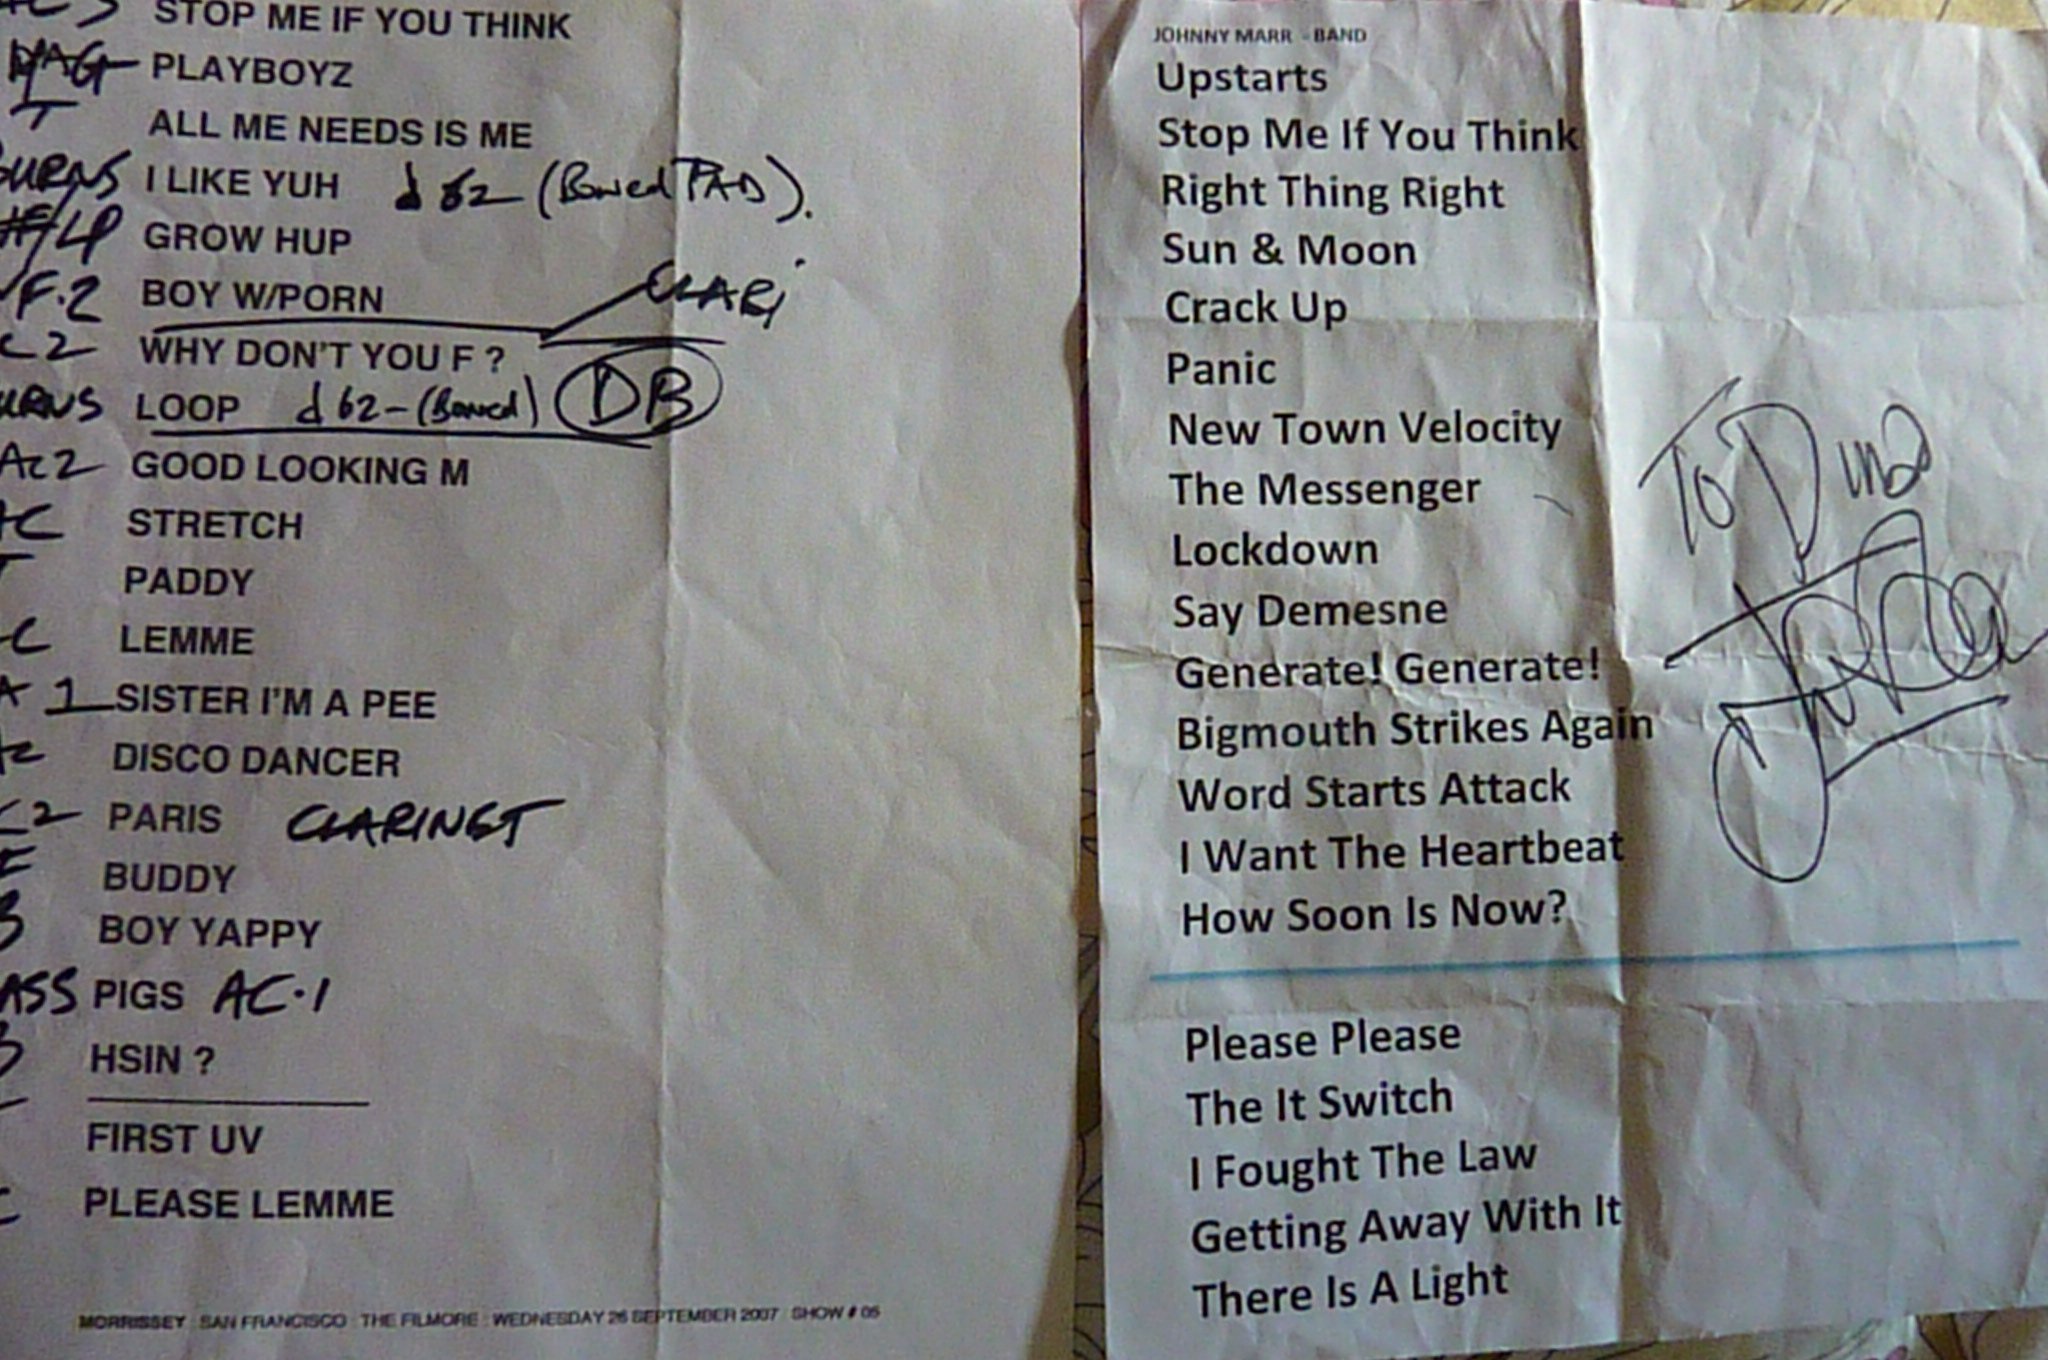 STOP ME IF YOU THINK
PLAYBOYZ
T ALL ME NEEDS IS ME
BURNS I LIKE YUH d 62 (Bowed PAD).
/LP GROW HUP
F.2 BOY W/PORN CLARI
C2 WHY DON'T YOU F ?
URNS LOOP d 62-(Bowed) DB
AC2 GOOD LOOKING M
AC STRETCH
PADDY
C LEMME
A 1 SISTER I'M A PEE
DISCO DANCER
C2 PARIS CLARINET
BUDDY
B BOY YAPPY
ASS PIGS AC.1
B HSIN ?
FIRST UV
C PLEASE LEMME
MORRISSEY : SAN FRANCISCO : THE FILMORE : WEDNESDAY 26 SEPTEMBER 2007 : SHOW # 05
JOHNNY MARR - BAND
Upstarts
Stop Me If You Think
Right Thing Right
Sun & Moon
Crack Up
Panic
New Town Velocity
The Messenger
Lockdown
Say Demesne
Generate! Generate!
Bigmouth Strikes Again
Word Starts Attack
I Want The Heartbeat
How Soon Is Now?
Please Please
The It Switch
I Fought The Law
Getting Away With It
There Is A Light
To Dina